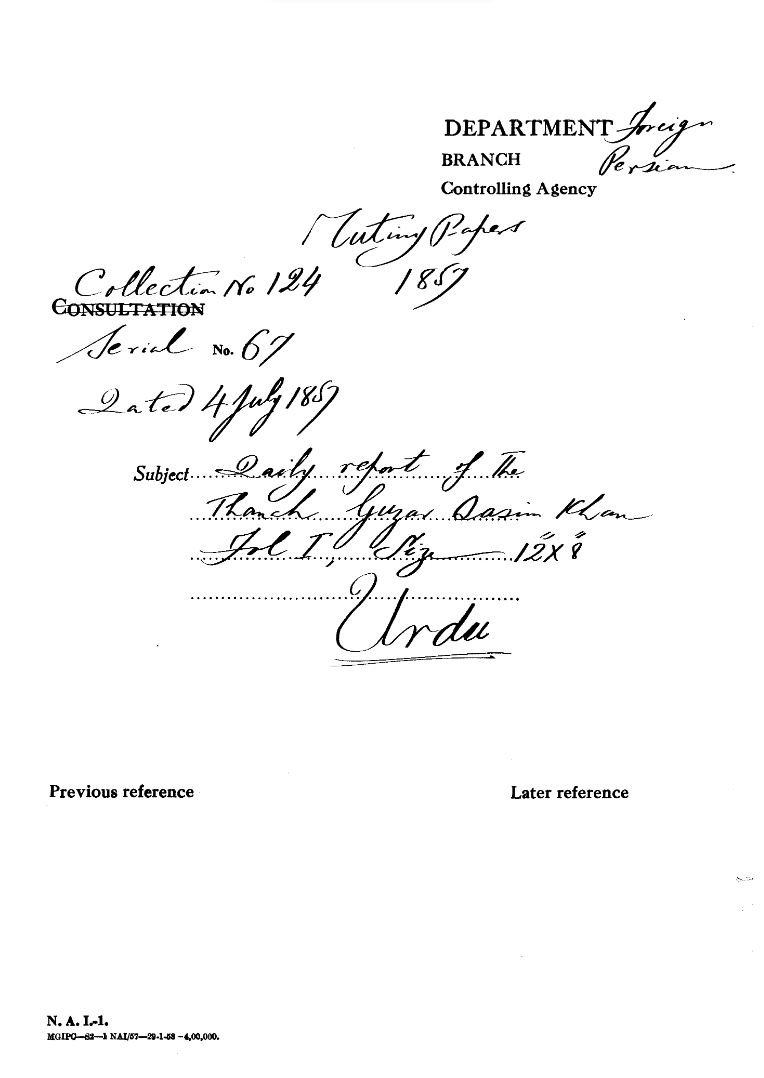 DEPARTMENT Foreign
BRANCH Persian
Controlling Agency
Mutiny Papers
1857
Collection No 124
CONSULTATION
Serial No. 67
Dated 4 July 1857
Subject Daily report of the
Thanah Guzar Qasim Khan
Fol I, Size 12"X8"
Urdu
Previous reference Later reference
N. A. I.-1.
MGIPC—S2—1 NAI/57—29-1-58—4,00,000.